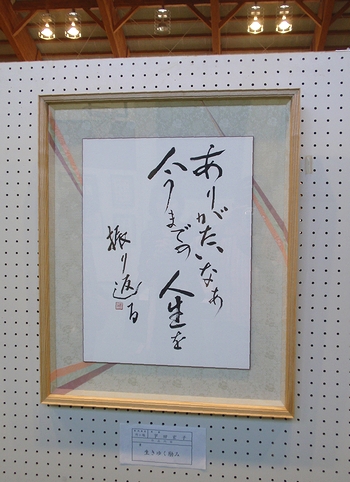 ありがたいなぁ
今までの人生を
振り返る
生きゆく励み